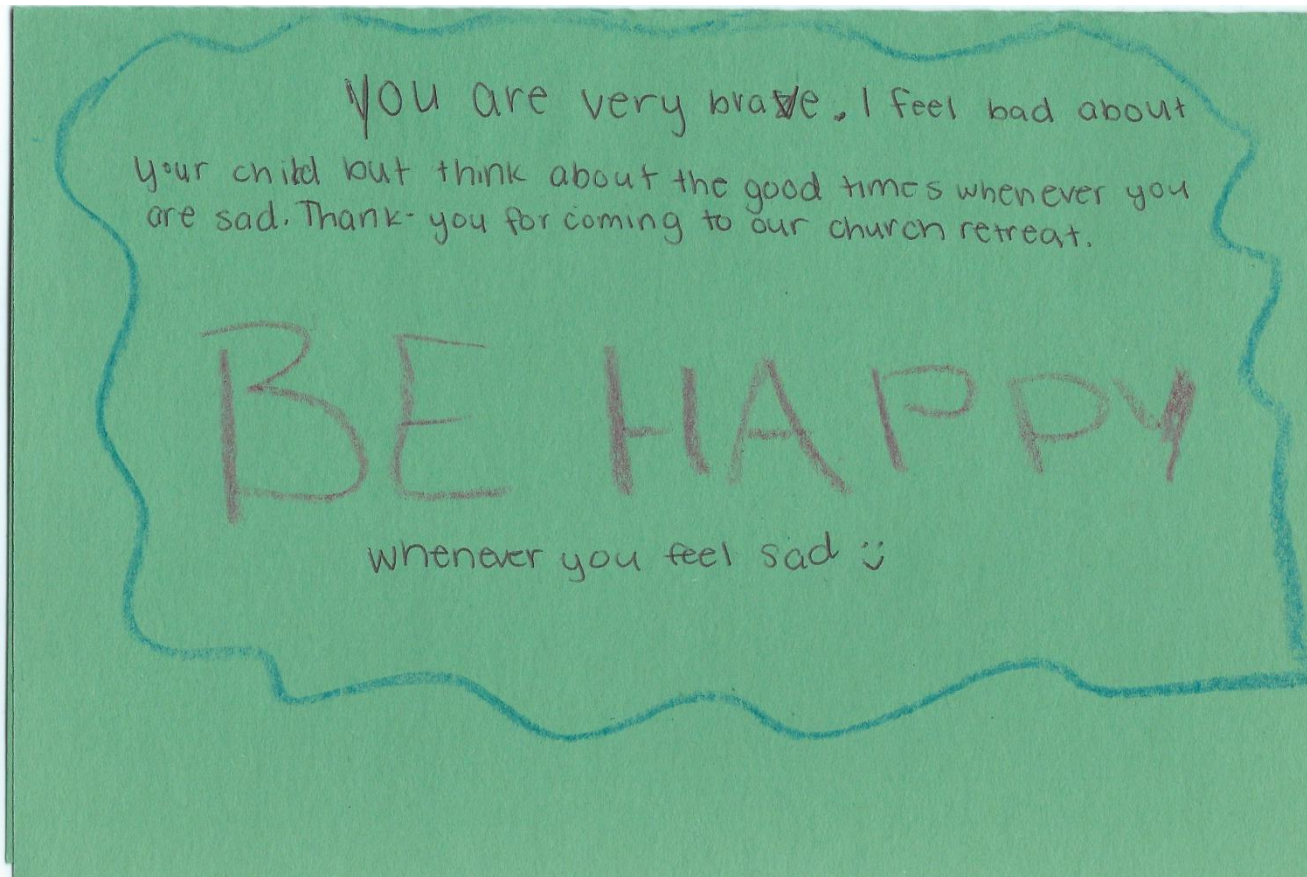 You are very brave. I feel bad about
your child but think about the good times whenever you
are sad. Thank-you for coming to our church retreat.
BE HAPPY
whenever you feel sad :)